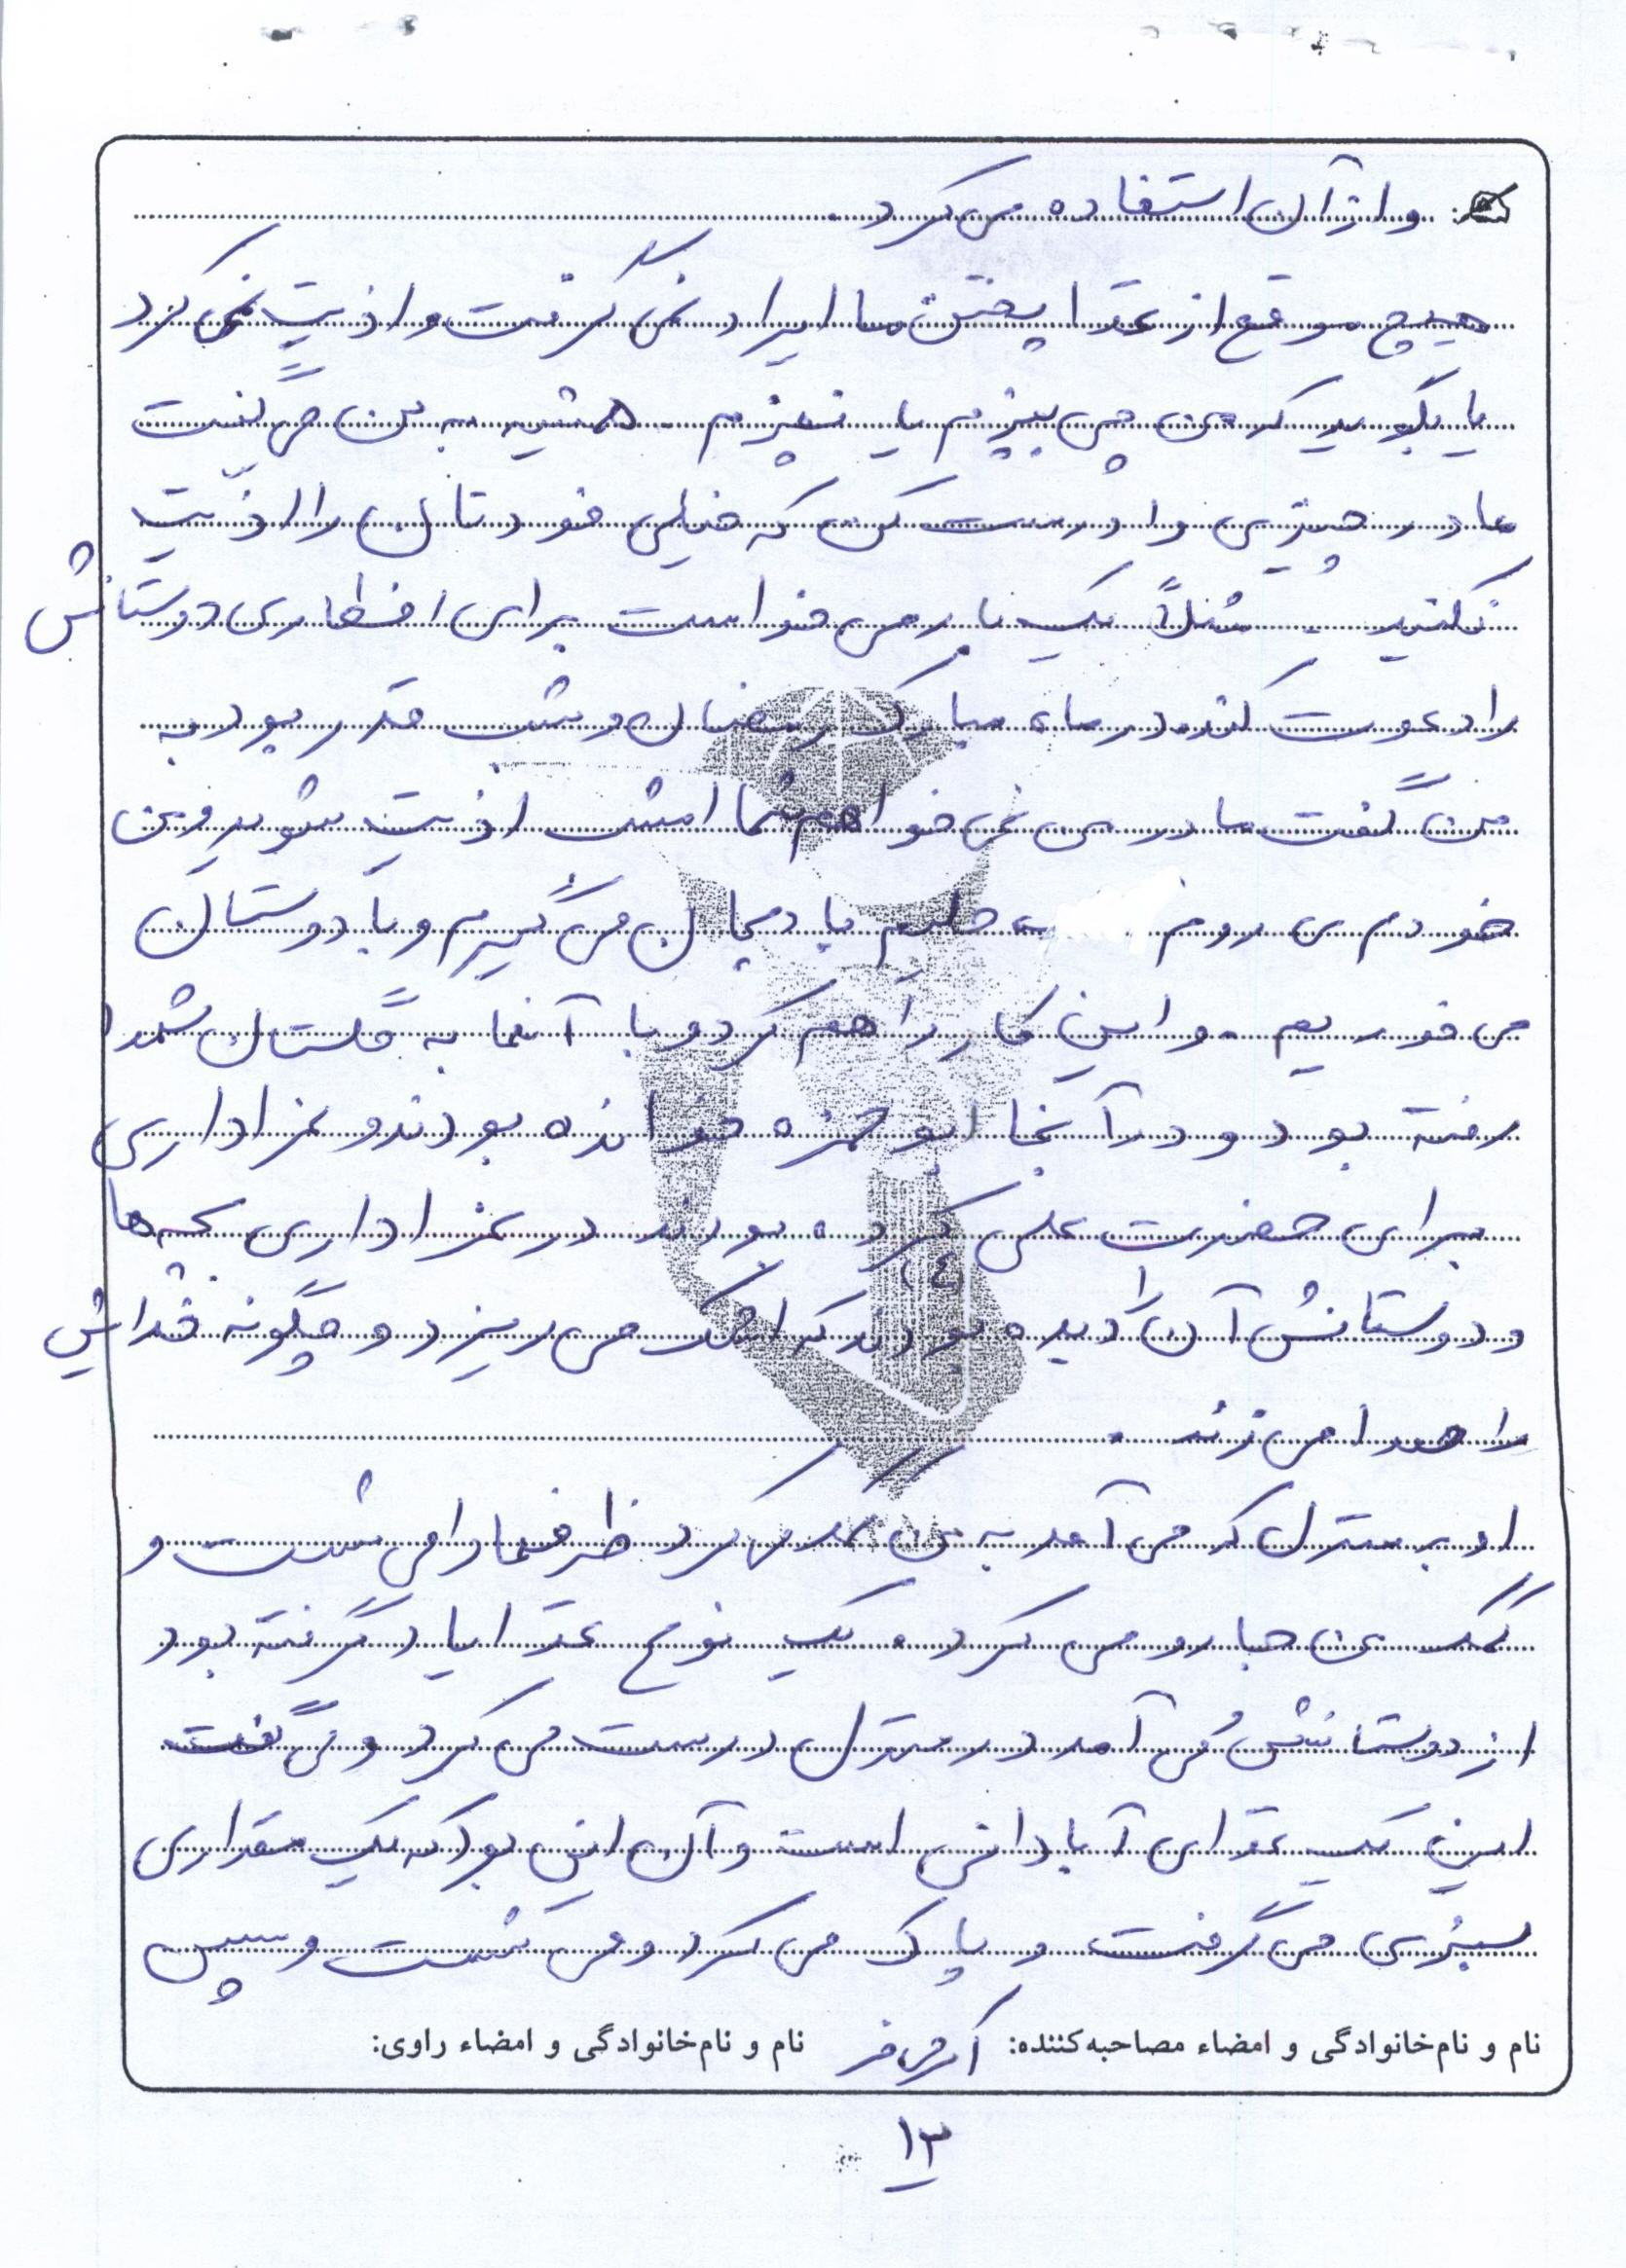 و از آن استفاده می کرد.
هیچ موقع از غذا پختن ما ایراد نمی گرفت و اذیت نمی کرد
یا بگوید که من چی بپزم یا نپزم. همشیه به من می گفت
مادر چیزی را درست کن که خیلی خودتان را اذیت
نکنید. مثلاً یک بار می خواست برای افطاری دوستانش
را دعوت کند در ماه مبارک رمضان و شب قدر بود به
من گفت مادر من نمی خواهم شما امشب اذیت شوید و من
خودم می روم حلیم بادمجان می گیرم و با دوستان
می خوریم. و این کار را هم کرد و با آنها به گلستان شهدا
رفته بود و در آنجا ابوحمزه خوانده بودند و عزاداری
برای حضرت علی (ع) کرده بودند در عزاداری بچه ها
و دوستانش آن را دیده بودند که اشک می ریزد و چگونه خدایش
را صدا می زند.
او به منزل که می آمد به من کمک می کرد ظرفها را می شست و
کمک من جارو می کرد. یک نوع غذا یاد گرفته بود
از دوستانش می آمد در منزل درست می کرد و می گفت
این یک غذای آبادانی است و آن این بود که یک مقداری
سبزی می گرفت و پاک می کرد و می شست و سپس
نام و نام‌خانوادگی و امضاء مصاحبه‌کننده: نام و نام‌خانوادگی و امضاء راوی:
۱۲